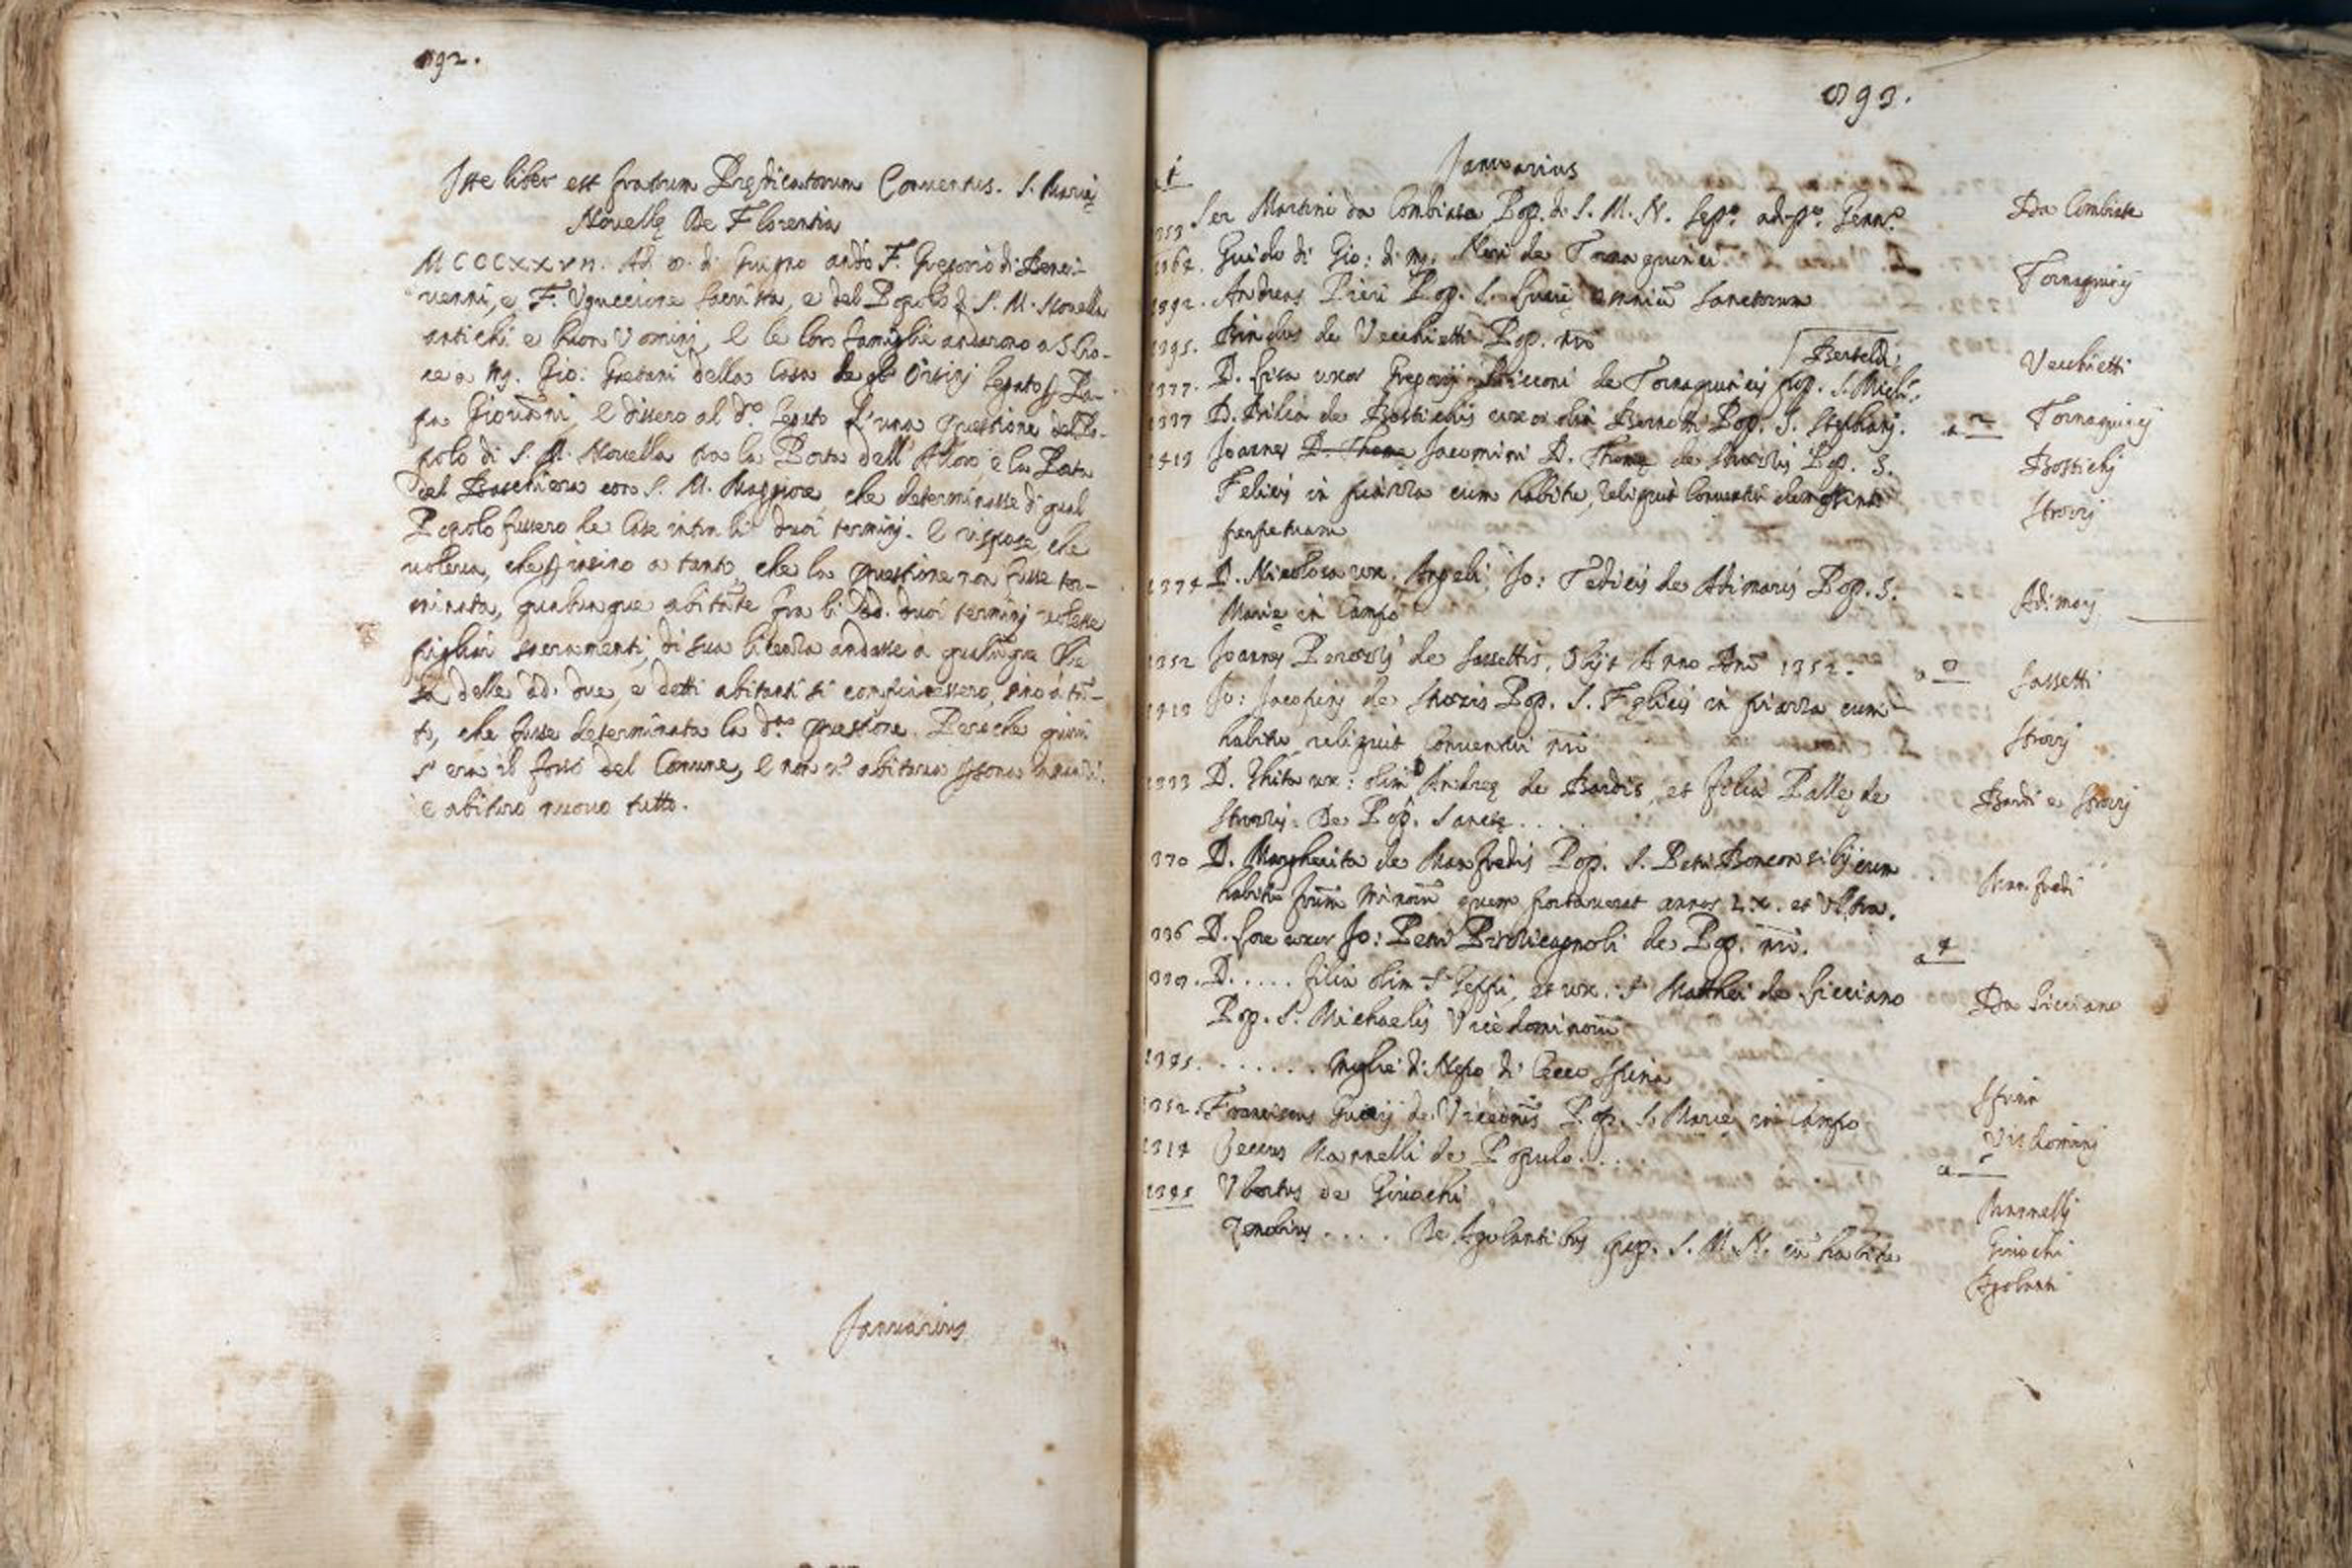 892.
Iste liber est fratrum Predicatorum Conuentus. S. Marię
Nouellę De Florentia
MCCCXXVII. Ad di Giugno andò F. Gregorio di Benci-
uenni, e F. Vguccione Sacrista, e del Popolo di S. M. Nouella
antichi e buon Vomini, e le loro famiglie andarono a
re a Mg. Gio: Gaetani della Casa degl' Orsini Legato Pa-
pa Giouanni, e dissero al d.º Legato d'una questione del Po-
polo di S. M. Nouella tra la Porta dell' Alloro e la Porta
del Baschiera con S. M. Maggiore, che determinasse di qual
Popolo fussero le Case intra li duoi termini. e rispose che
voleua, che insino a tanto che la questione non fusse ter-
minata, qualunque abitante fra li dd. duoi termini volesse
pigliar sacramenti, di sua licenza andasse a qualunque Chie
sa delle dd. due, e detti abitanti si confessassero, sino a tan-
to, che fusse determinata la d.ª questione. Peroche quiui
s' era il fosso del Comune, e non vi abitaua
e abituro nuouo tutto.
Januarius
893.
Januarius
Ser Martini da Combiata Pop. di S. M. N. Sepº. ad pº. Gennº. Da Combiata
Guido di Gio: di Mg. Neri de Tornaquinci Tornaquinci
1392. Andreas Pieri Pop. S. omnium Sanctorum
1395. Bindus de Vecchietti Pop. nrõ Vecchietti
Bertelde
1377. D. Lisa uxor Gregorij de Tornaquincis pop. S. Mich. Tornaquincij
1337 D. Bilia de Bostichis uxor olim Pop. S. Stephani. Bostichi
1419 Joannes D. Thome Jacomini D. Thomę de Strozis Pop. S. Strozzi
Felicis in piazza cum habitu, reliquit Conuentui elemosinam
perpetuam
1374 D. Nicolosa ux. Angeli Jo: Tedicis de Adimaris Pop. S. Adimari
Marię in Campo
1352 Joannes de Sassettis, Obijt Anno Dnĩ 1352. Sassetti
1419 Jo: Jacopini de Strozis Pop. S. Felicis in piazza cum Strozzi
habitu reliquit Conuentui nrõ
1333 D. Ghita ux: olim Andreę de Bardis, et filia Pallę de Bardi e Strozzi
Strozis. De Pop. Sancte . . . .
1370 D. Margherita de Manfredis Pop. S. Petri Bonconsilij cum Manfredi
habitu frum Minorum quem portauerat annos L.X. et Vltra.
336 D. Lore uxor Jo: Petri de Pop. nrĩ.
339. D. . . . . . filia olim S. Geppi, et ux: S. Matthei de Licciano Da Licciano
Pop. S. Michaelis Vicedominorum
1395. . . . . . . Moglie di Nepo di Cecco Spina Spina
1352. Franciscus de Vicedominis Pop. S. Marię in Campo Visdomini
1314 Ceccus Mannelli de Populo . . . . Mannelli
1395 Vbertus de Giuochi Giuochi
Zenobius . . . . De Agolantibus pop. S. M. N. cũ habitu Agolanti